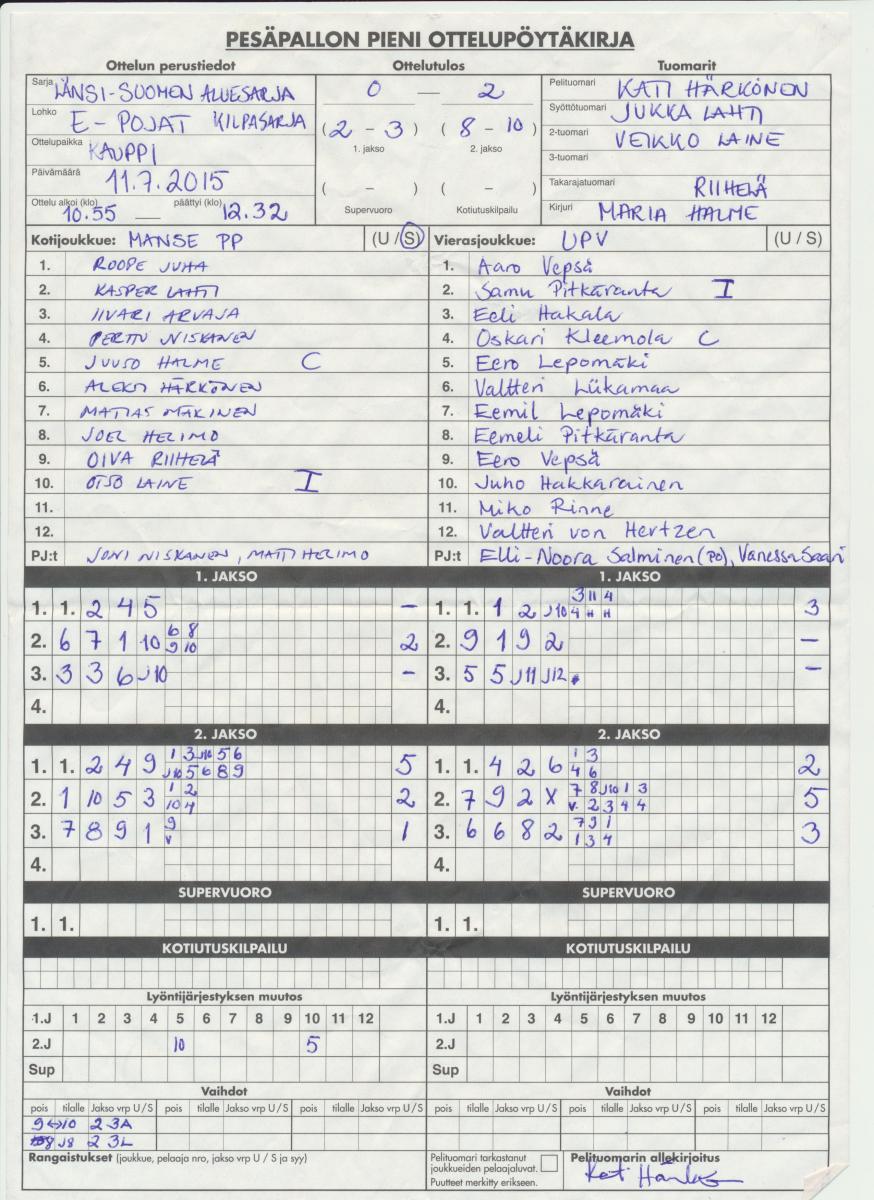 PESÄPALLON PIENI OTTELUPÖYTÄKIRJA
Ottelun perustiedot Ottelutulos Tuomarit
Sarja LÄNSI-SUOMEN ALUESARJA
Lohko E - POJAT KILPASARJA
Ottelupaikka KAUPPI
Päivämäärä 11.7.2015
Ottelu alkoi (klo) 10.55 — päättyi (klo) 12.32
0 — 2
( 2 - 3 ) ( 8 - 10 )
1. jakso 2. jakso
( – ) ( – )
Supervuoro Kotiutuskilpailu
Pelituomari KATI HÄRKÖNEN
Syöttötuomari JUKKA LAHTI
2-tuomari VEIKKO LAINE
3-tuomari
Takarajatuomari RIIHELÄ
Kirjuri MARIA HALME
Kotijoukkue: MANSE PP (U / S)
1. ROOPE JUHA
2. KASPER LAHTI
3. IIVARI ARVAJA
4. PERTTU NISKANEN
5. JUUSO HALME C
6. ALEKSI HÄRKÖNEN
7. MATIAS MÄKINEN
8. JOEL HELIMO
9. OIVA RIIHELÄ
10. OTSO LAINE I
11.
12.
PJ:t JONI NISKANEN, MATTI HELIMO
Vierasjoukkue: UPV (U / S)
1. Aaro Vepsä
2. Samu Pitkäranta I
3. Eeli Hakala
4. Oskari Kleemola C
5. Eero Lepomäki
6. Valtteri Liikamaa
7. Eemil Lepomäki
8. Eemeli Pitkäranta
9. Eero Vepsä
10. Juho Hakkarainen
11. Miko Rinne
12. Valtteri von Hertzen
PJ:t Elli-Noora Salminen (PO), Vanessa Saari
1. JAKSO
1. 1. 2 4 5 –
6 8
2. 6 7 1 10 9 10 2
3. 3 3 6 J10 –
4.
1. JAKSO
3 11 4
1. 1. 1 2 J10 4 H H 3
2. 9 1 9 2 –
3. 5 5 J11 J12 –
4.
2. JAKSO
1 3 J10 5 6
1. 1. 2 4 9 J10 5 6 8 9 5
1 2
2. 1 10 5 3 10 4 2
9
3. 7 8 9 1 V 1
4.
2. JAKSO
1 3
1. 1. 4 2 6 4 6 2
7 8 J10 1 3
2. 7 9 2 X V. 2 3 4 4 5
7 9 1
3. 6 6 8 2 1 3 4 3
4.
SUPERVUORO SUPERVUORO
1. 1. 1. 1.
KOTIUTUSKILPAILU KOTIUTUSKILPAILU
Lyöntijärjestyksen muutos Lyöntijärjestyksen muutos
1.J 1 2 3 4 5 6 7 8 9 10 11 12 1.J 1 2 3 4 5 6 7 8 9 10 11 12
2.J 10 5 2.J
Sup Sup
Vaihdot Vaihdot
pois tilalle Jakso vrp U / S pois tilalle Jakso vrp U / S pois tilalle Jakso vrp U / S pois tilalle Jakso vrp U / S pois tilalle Jakso vrp U / S pois tilalle Jakso vrp U / S
9↔10 2 3A
J8 2 3L
Rangaistukset (joukkue, pelaaja nro, jakso vrp U / S ja syy)
Pelituomari tarkastanut
joukkueiden pelaajaluvat.
Puutteet merkitty erikseen.
Pelituomarin allekirjoitus